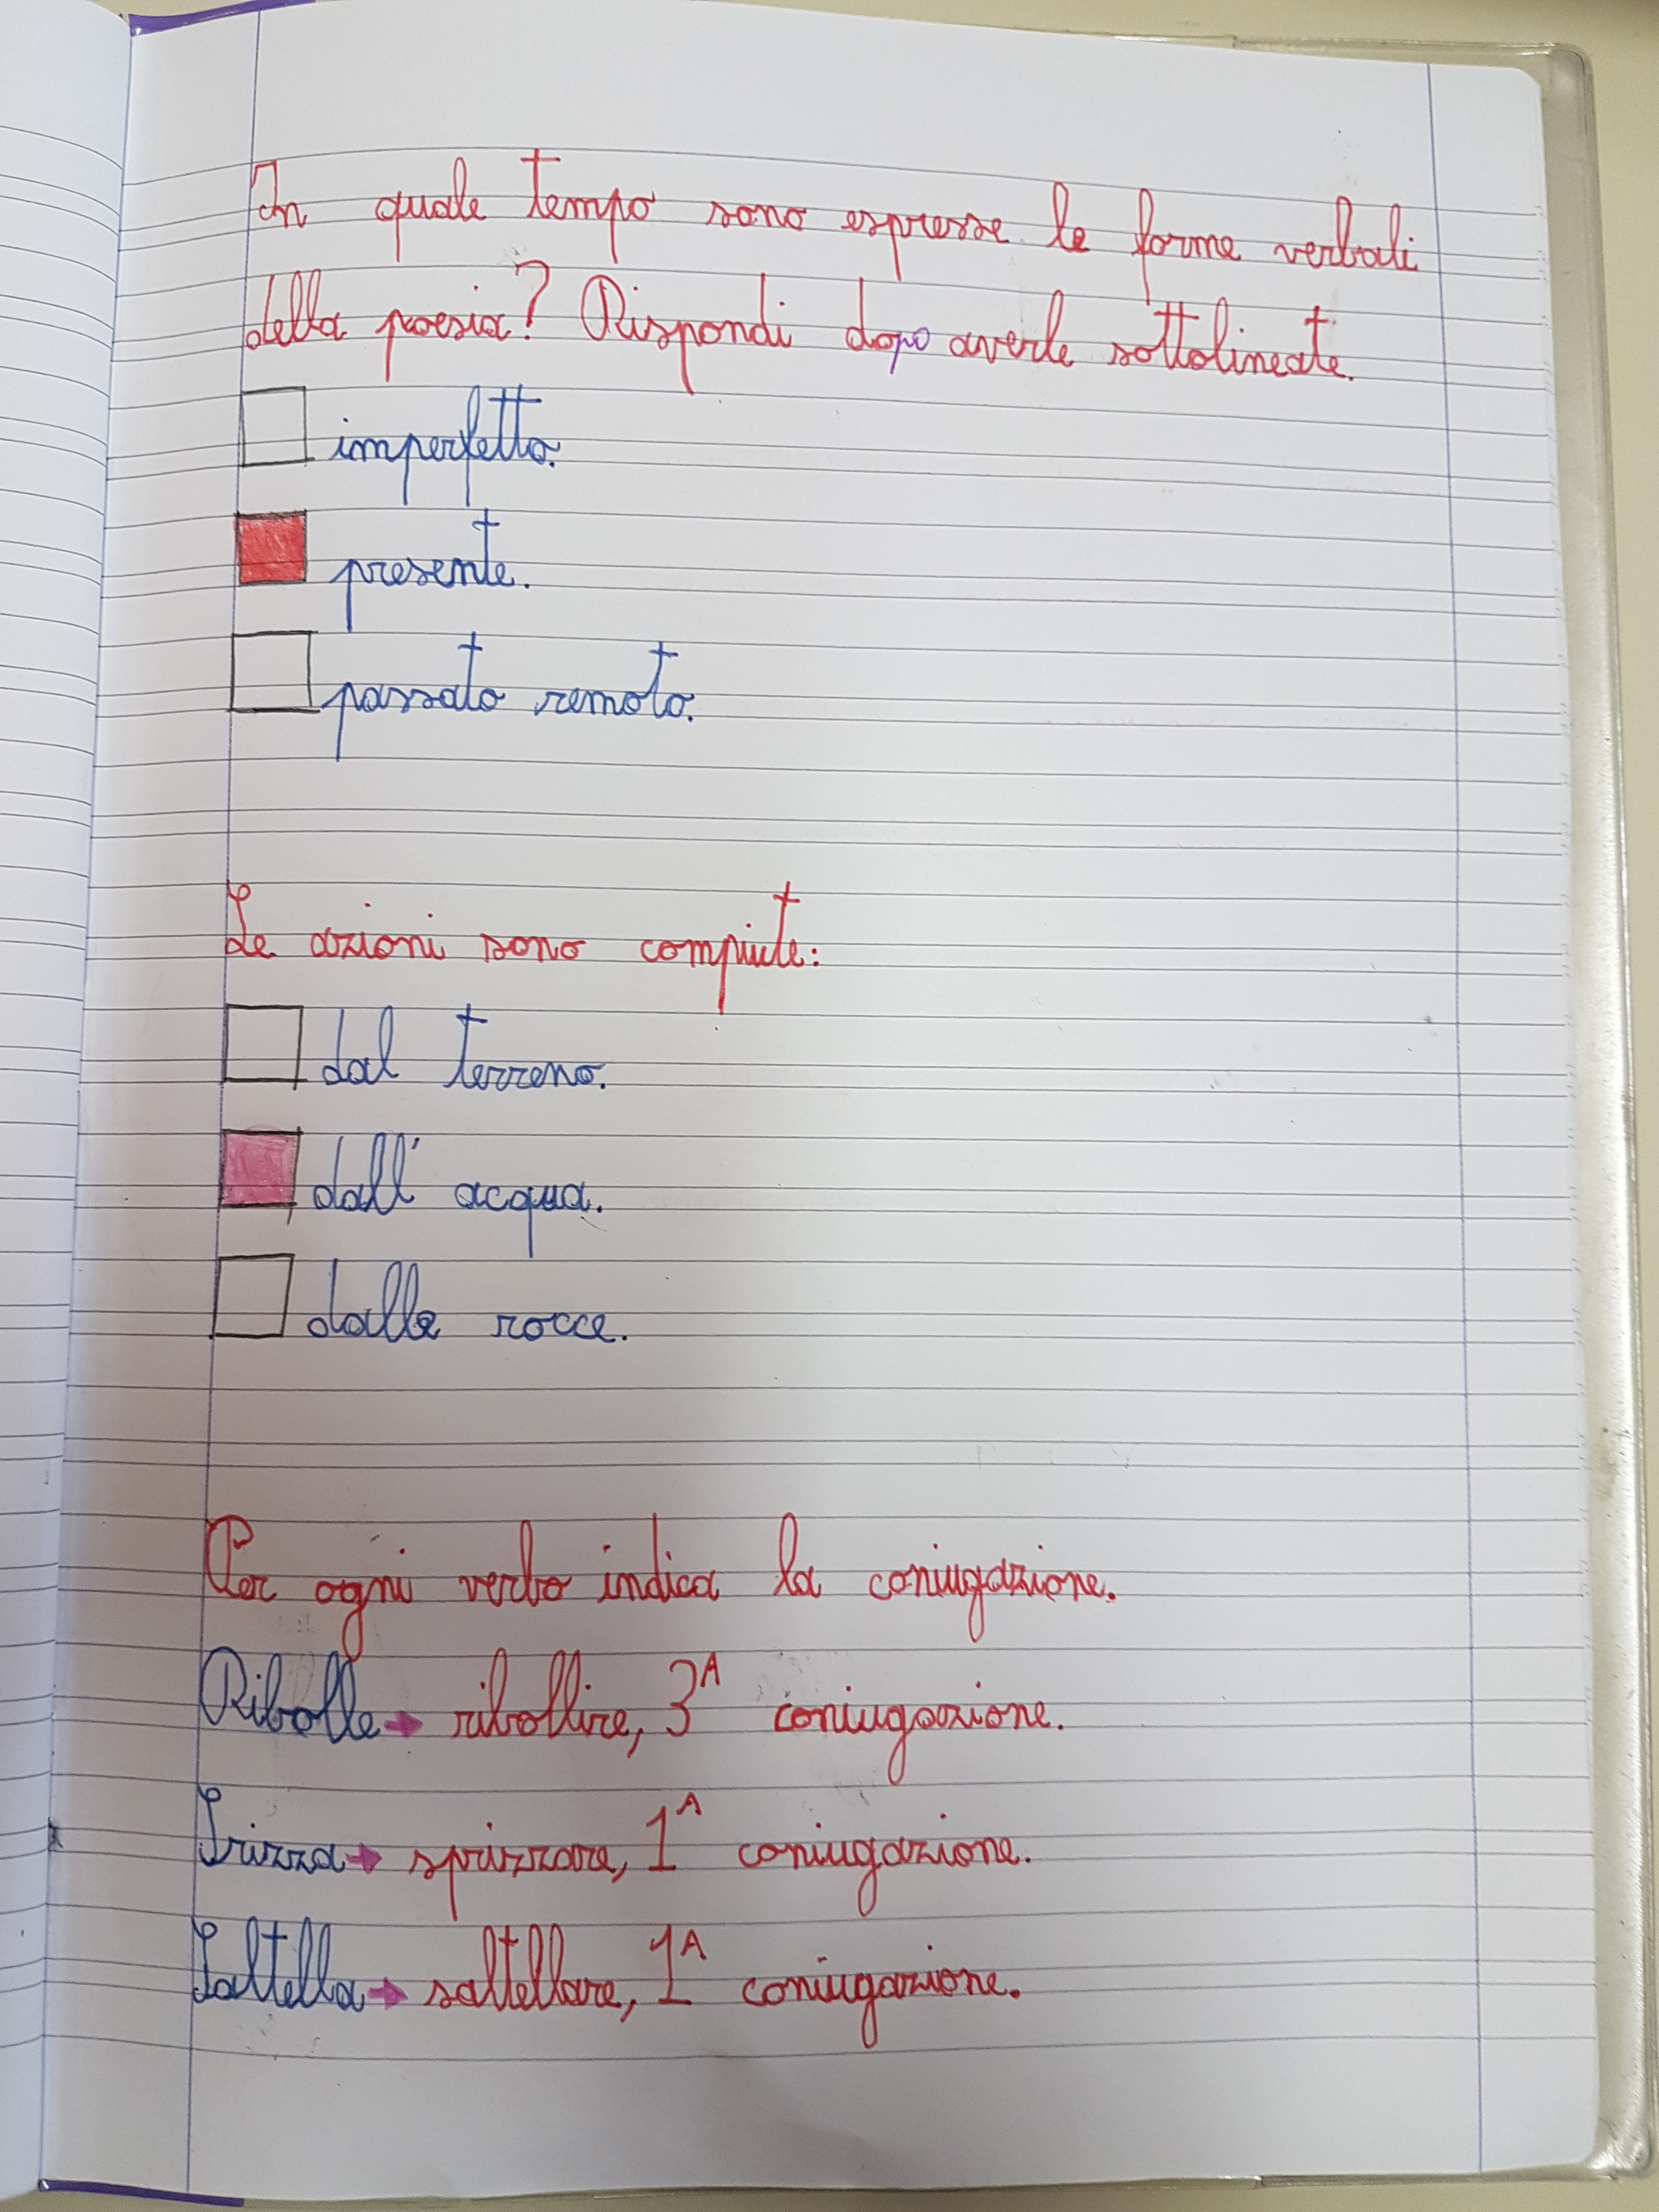 In quale tempo sono espresse le forme verbali
della poesia? Rispondi dopo averle sottolineate.
imperfetto.
presente.
passato remoto.
Le azioni sono compiute:
dal terreno.
dall' acqua.
dalle rocce.
Per ogni verbo indica la coniugazione.
Ribolle → ribollire, 3ᴬ coniugazione.
→ sprizzare, 1ᴬ coniugazione.
Saltella → saltellare, 1ᴬ coniugazione.